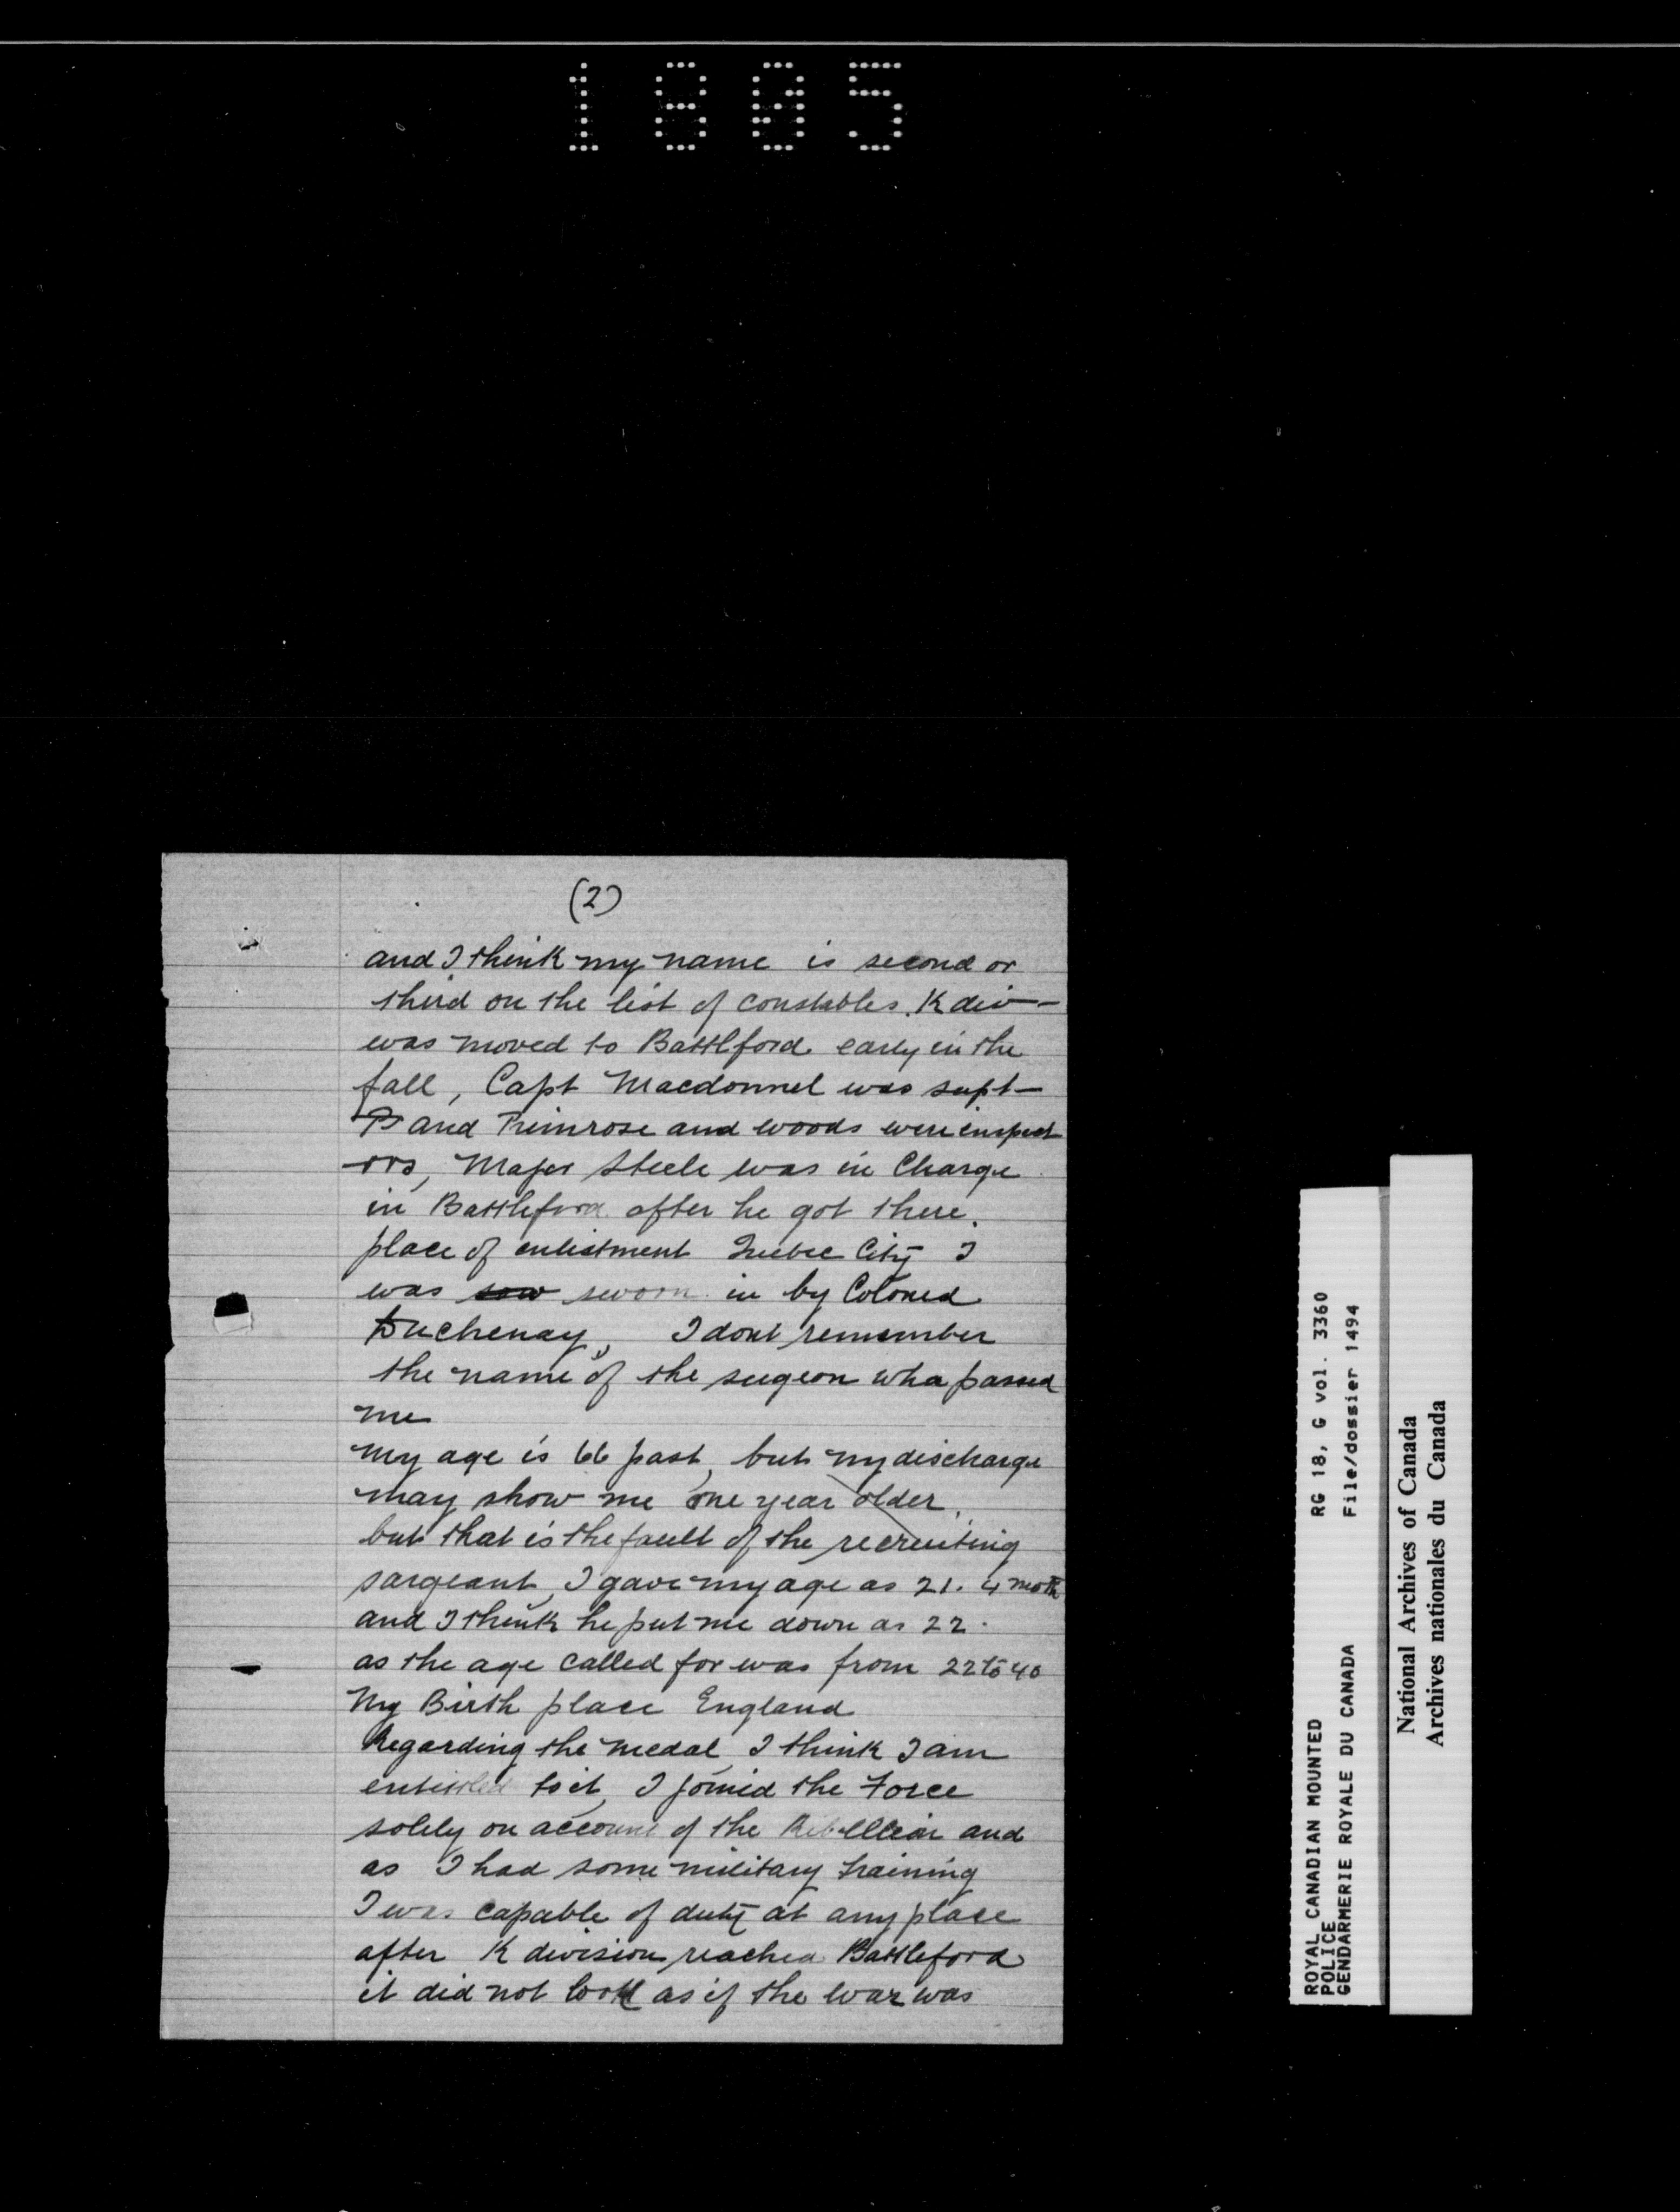 1805
(2)
and I think my name is second or
third on the list of constables. K div—
was moved to Battlford early in the
fall, Capt Macdonnel was supt—
P and Primrose and woods were inspect
-ors, Major Steele was in Charge
in Battleford after he got there.
place of enlistment Quebec City I
was sow sworn in by Colonel
Duchenay, I dont remember
the name of the surgeon who passed
me
my age is 66 past, but my discharge
may show me one year older,
but that is the fault of the recruiting
sargeant, I gave my age as 21. 4 moth
and I think he put me down as 22.
as the age called for was from 22 to 40
My Birth place England
Regarding the medal, I think I am
entittled to it, I joined the Force
solely on account of the Rebellion and
as I had some military training
I was capable of duty at any place
after K division reached Battleford
it did not look as if the war was
ROYAL CANADIAN MOUNTED RG 18, G vol. 3360
POLICE File/dossier 1494
GENDARMERIE ROYALE DU CANADA
National Archives of Canada
Archives nationales du Canada